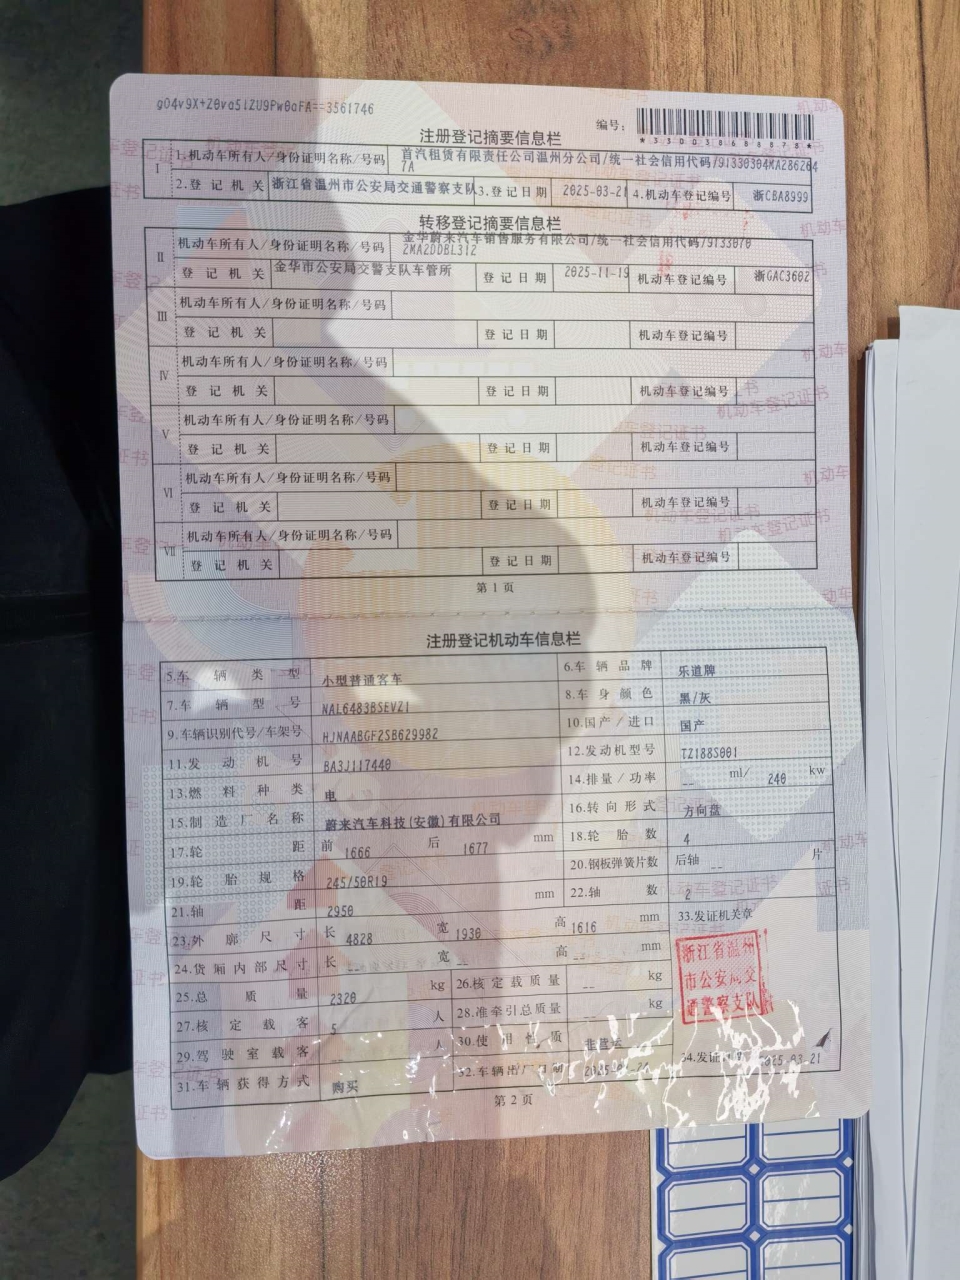 gO4v9X+Z0va5lZU9Pw0aFA==3561746
编号:
*330030688878*
注册登记摘要信息栏
I 1.机动车所有人/身份证明名称/号码 首汽租赁有限责任公司温州分公司/统一社会信用代码/91330304MA286264
7A
2.登记机关 浙江省温州市公安局交通警察支队 3.登记日期 2025-03-21 4.机动车登记编号 浙CBA8999
转移登记摘要信息栏
II 机动车所有人/身份证明名称/号码 金华蔚来汽车销售服务有限公司/统一社会信用代码/9133070
2MA2DDBL312
登记机关 金华市公安局交警支队车管所 登记日期 2025-11-19 机动车登记编号 浙GAC3602
III 机动车所有人/身份证明名称/号码
登记机关 登记日期 机动车登记编号
IV 机动车所有人/身份证明名称/号码
登记机关 登记日期 机动车登记编号
V 机动车所有人/身份证明名称/号码
登记机关 登记日期 机动车登记编号
VI 机动车所有人/身份证明名称/号码
登记机关 登记日期 机动车登记编号
VII 机动车所有人/身份证明名称/号码
登记机关 登记日期 机动车登记编号
第1页
注册登记机动车信息栏
5.车辆类型 小型普通客车 6.车辆品牌 乐道牌
7.车辆型号 NAL6483BSEVZ1 8.车身颜色 黑/灰
9.车辆识别代号/车架号 HJNAABGF2SB629982 10.国产/进口 国产
11.发动机号 BA3J117440 12.发动机型号 TZ188S001
13.燃料种类 电 14.排量/功率 -- ml/ 240 kw
15.制造厂名称 蔚来汽车科技(安徽)有限公司 16.转向形式 方向盘
17.轮距 前 1666 后 1677 mm 18.轮胎数 4
19.轮胎规格 245/50R19 20.钢板弹簧片数 后轴 -- 片
21.轴距 2950 mm 22.轴数 2
23.外廓尺寸 长 4828 宽 1930 高 1616 mm 33.发证机关章
24.货厢内部尺寸 长 -- 宽 -- 高 -- mm
浙江省温州
市公安局交
通警察支队
25.总质量 2320 kg 26.核定载质量 -- kg
27.核定载客 5 人 28.准牵引总质量 -- kg
29.驾驶室载客 -- 人 30.使用性质 非营运
31.车辆获得方式 购买 32.车辆出厂日期 34.发证日期 2025-03-21
第2页